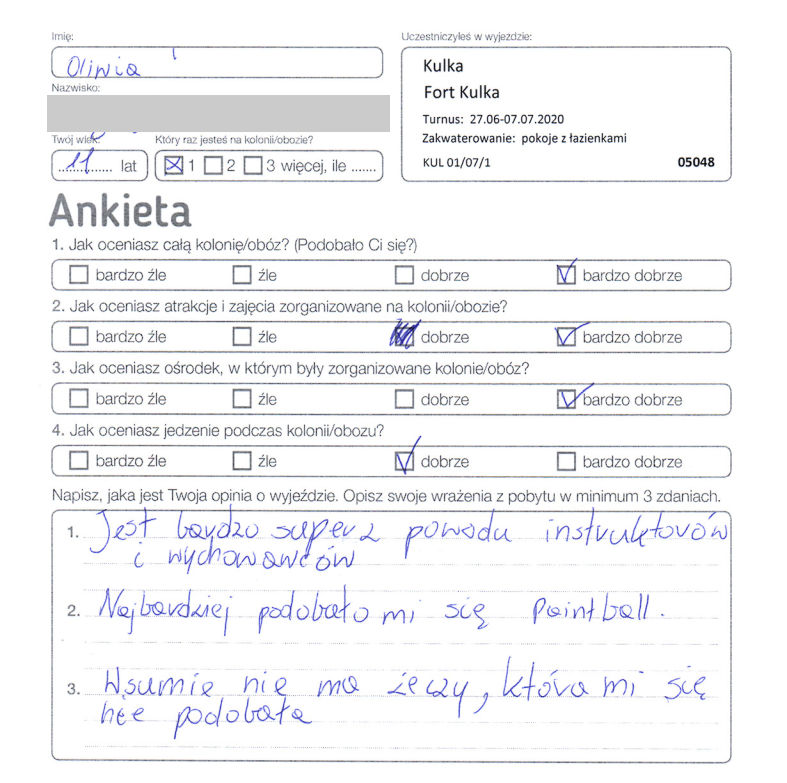 Imię:
Oliwia
Nazwisko:
Twój wiek:
Który raz jesteś na kolonii/obozie?
11 lat
1 2 3 więcej, ile .......
Uczestniczyłeś w wyjeździe:
Kulka
Fort Kulka
Turnus: 27.06-07.07.2020
Zakwaterowanie: pokoje z łazienkami
KUL 01/07/1 05048
Ankieta
1. Jak oceniasz całą kolonię/obóz? (Podobało Ci się?)
bardzo źle źle dobrze bardzo dobrze
2. Jak oceniasz atrakcje i zajęcia zorganizowane na kolonii/obozie?
bardzo źle źle dobrze bardzo dobrze
3. Jak oceniasz ośrodek, w którym były zorganizowane kolonie/obóz?
bardzo źle źle dobrze bardzo dobrze
4. Jak oceniasz jedzenie podczas kolonii/obozu?
bardzo źle źle dobrze bardzo dobrze
Napisz, jaka jest Twoja opinia o wyjeździe. Opisz swoje wrażenia z pobytu w minimum 3 zdaniach.
1. Jest bardzo super z powodu instruktorów
i wychowawców
2. Najbardziej podobało mi się paintball.
3. Wsumie nie ma żeczy, która mi się
nie podobała